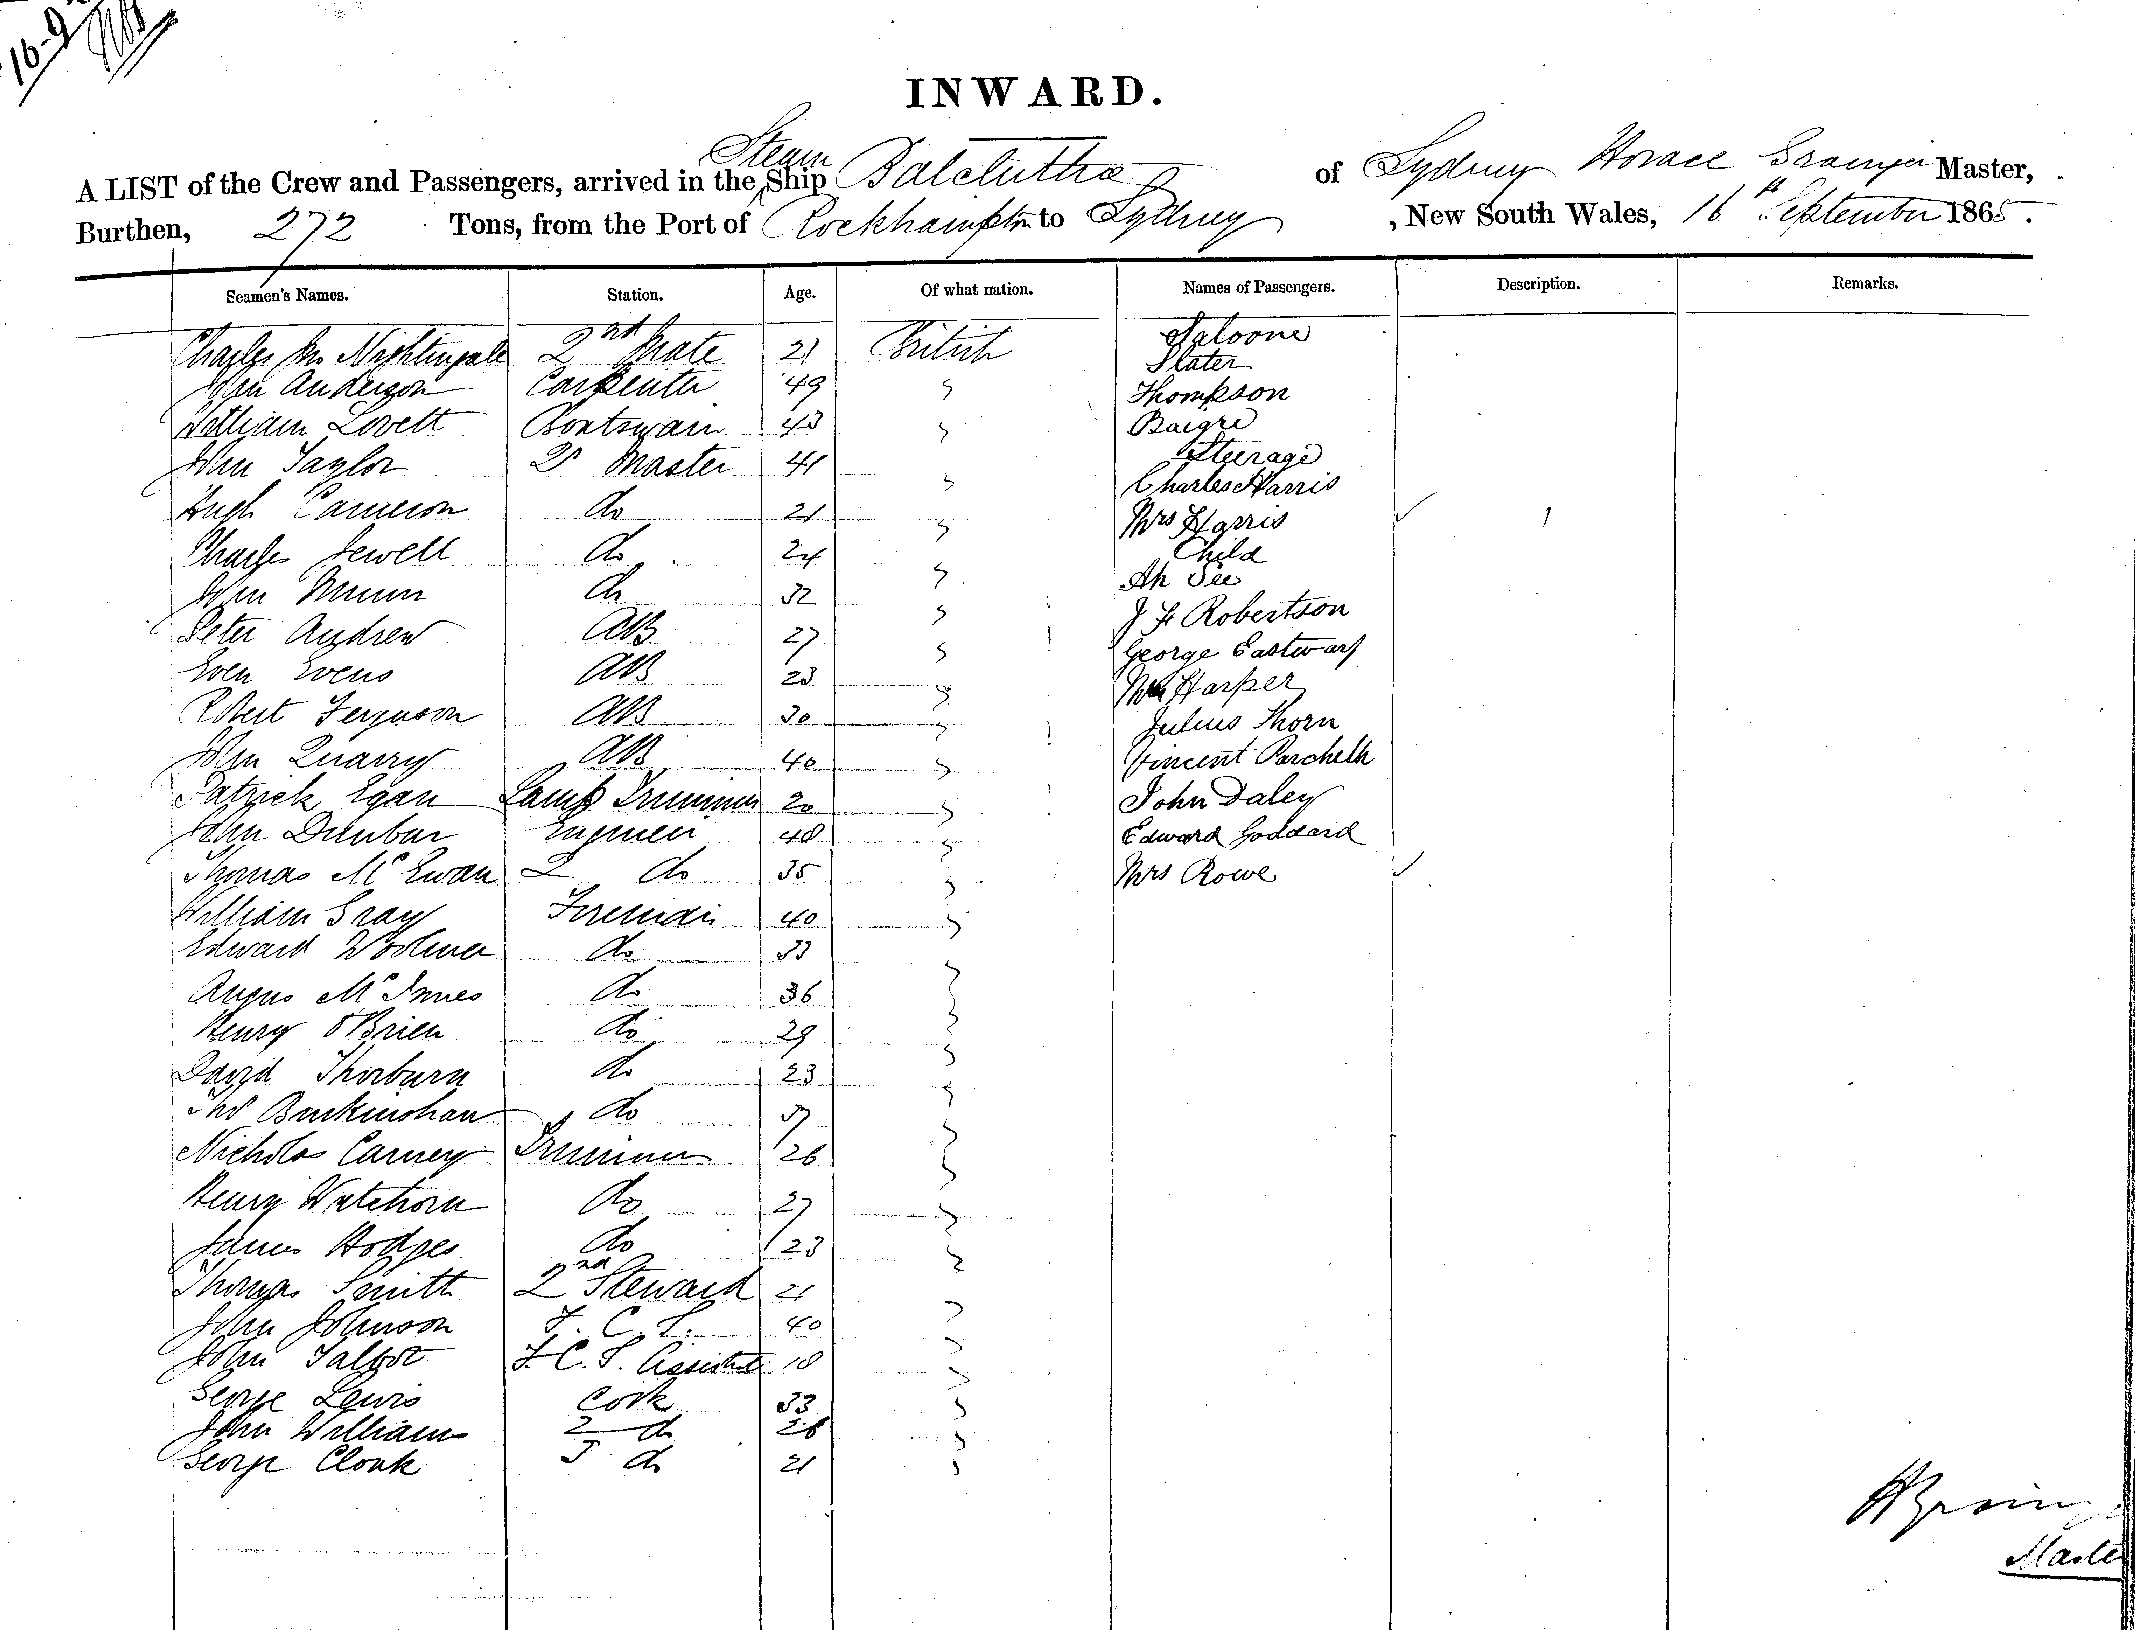 16-9
INWARD.
A LIST of the Crew and Passengers, arrived in the Steam Ship Balclutha of Sydney Horace Grainger Master,
Burthen, 272 Tons, from the Port of Rockhampton to Sydney , New South Wales, 16th September 1865.
Seamen's Names. Station. Age. Of what nation. Names of Passengers. Description. Remarks.
Charles Nightingale 2nd Mate 21 British Saloone
Slater
John Anderson Carpenter 49 " Thompson
William Lovett Boatswain 43 " Baigrie
John Taylor Qr Master 41 " Steerage
Charles Harris
Hugh Cameron do 21 " Mrs Harris
Charles Jewell do 24 " Child
John Munn do 32 " Ah See
Peter Andrew AB 27 " J F Robertson
Even Evens AB 23 " George
Robert Ferguson AB 30 " Harper
Julius Thorn
John Quarry AB 40 " Vincent
Patrick Egan Lamp Trimmer 20 " John Daley
John Dunbar Engineer 48 " Edward Goddard
Thomas McEwan 2 do 35 " Mrs Rowe
William Gray Fireman 40 "
Edward Woolmer do 33 "
Angus McInnes do 36 "
Henry O'Brien do 29 "
David Thorburn do 23 "
Thos Buckinghan do 37 "
Nicholas Carney Trimmer 26 "
Henry Watehorn do 27 "
James Hodges do 23 "
Thomas Smith 2nd Steward 21 "
John Johnson F. C. S. 40 "
John Talbot F. C. S. Assistant 18 "
George Lewis Cook 33 "
John Williams 2 do 26 "
George Cloak 3 do 21 "
Master